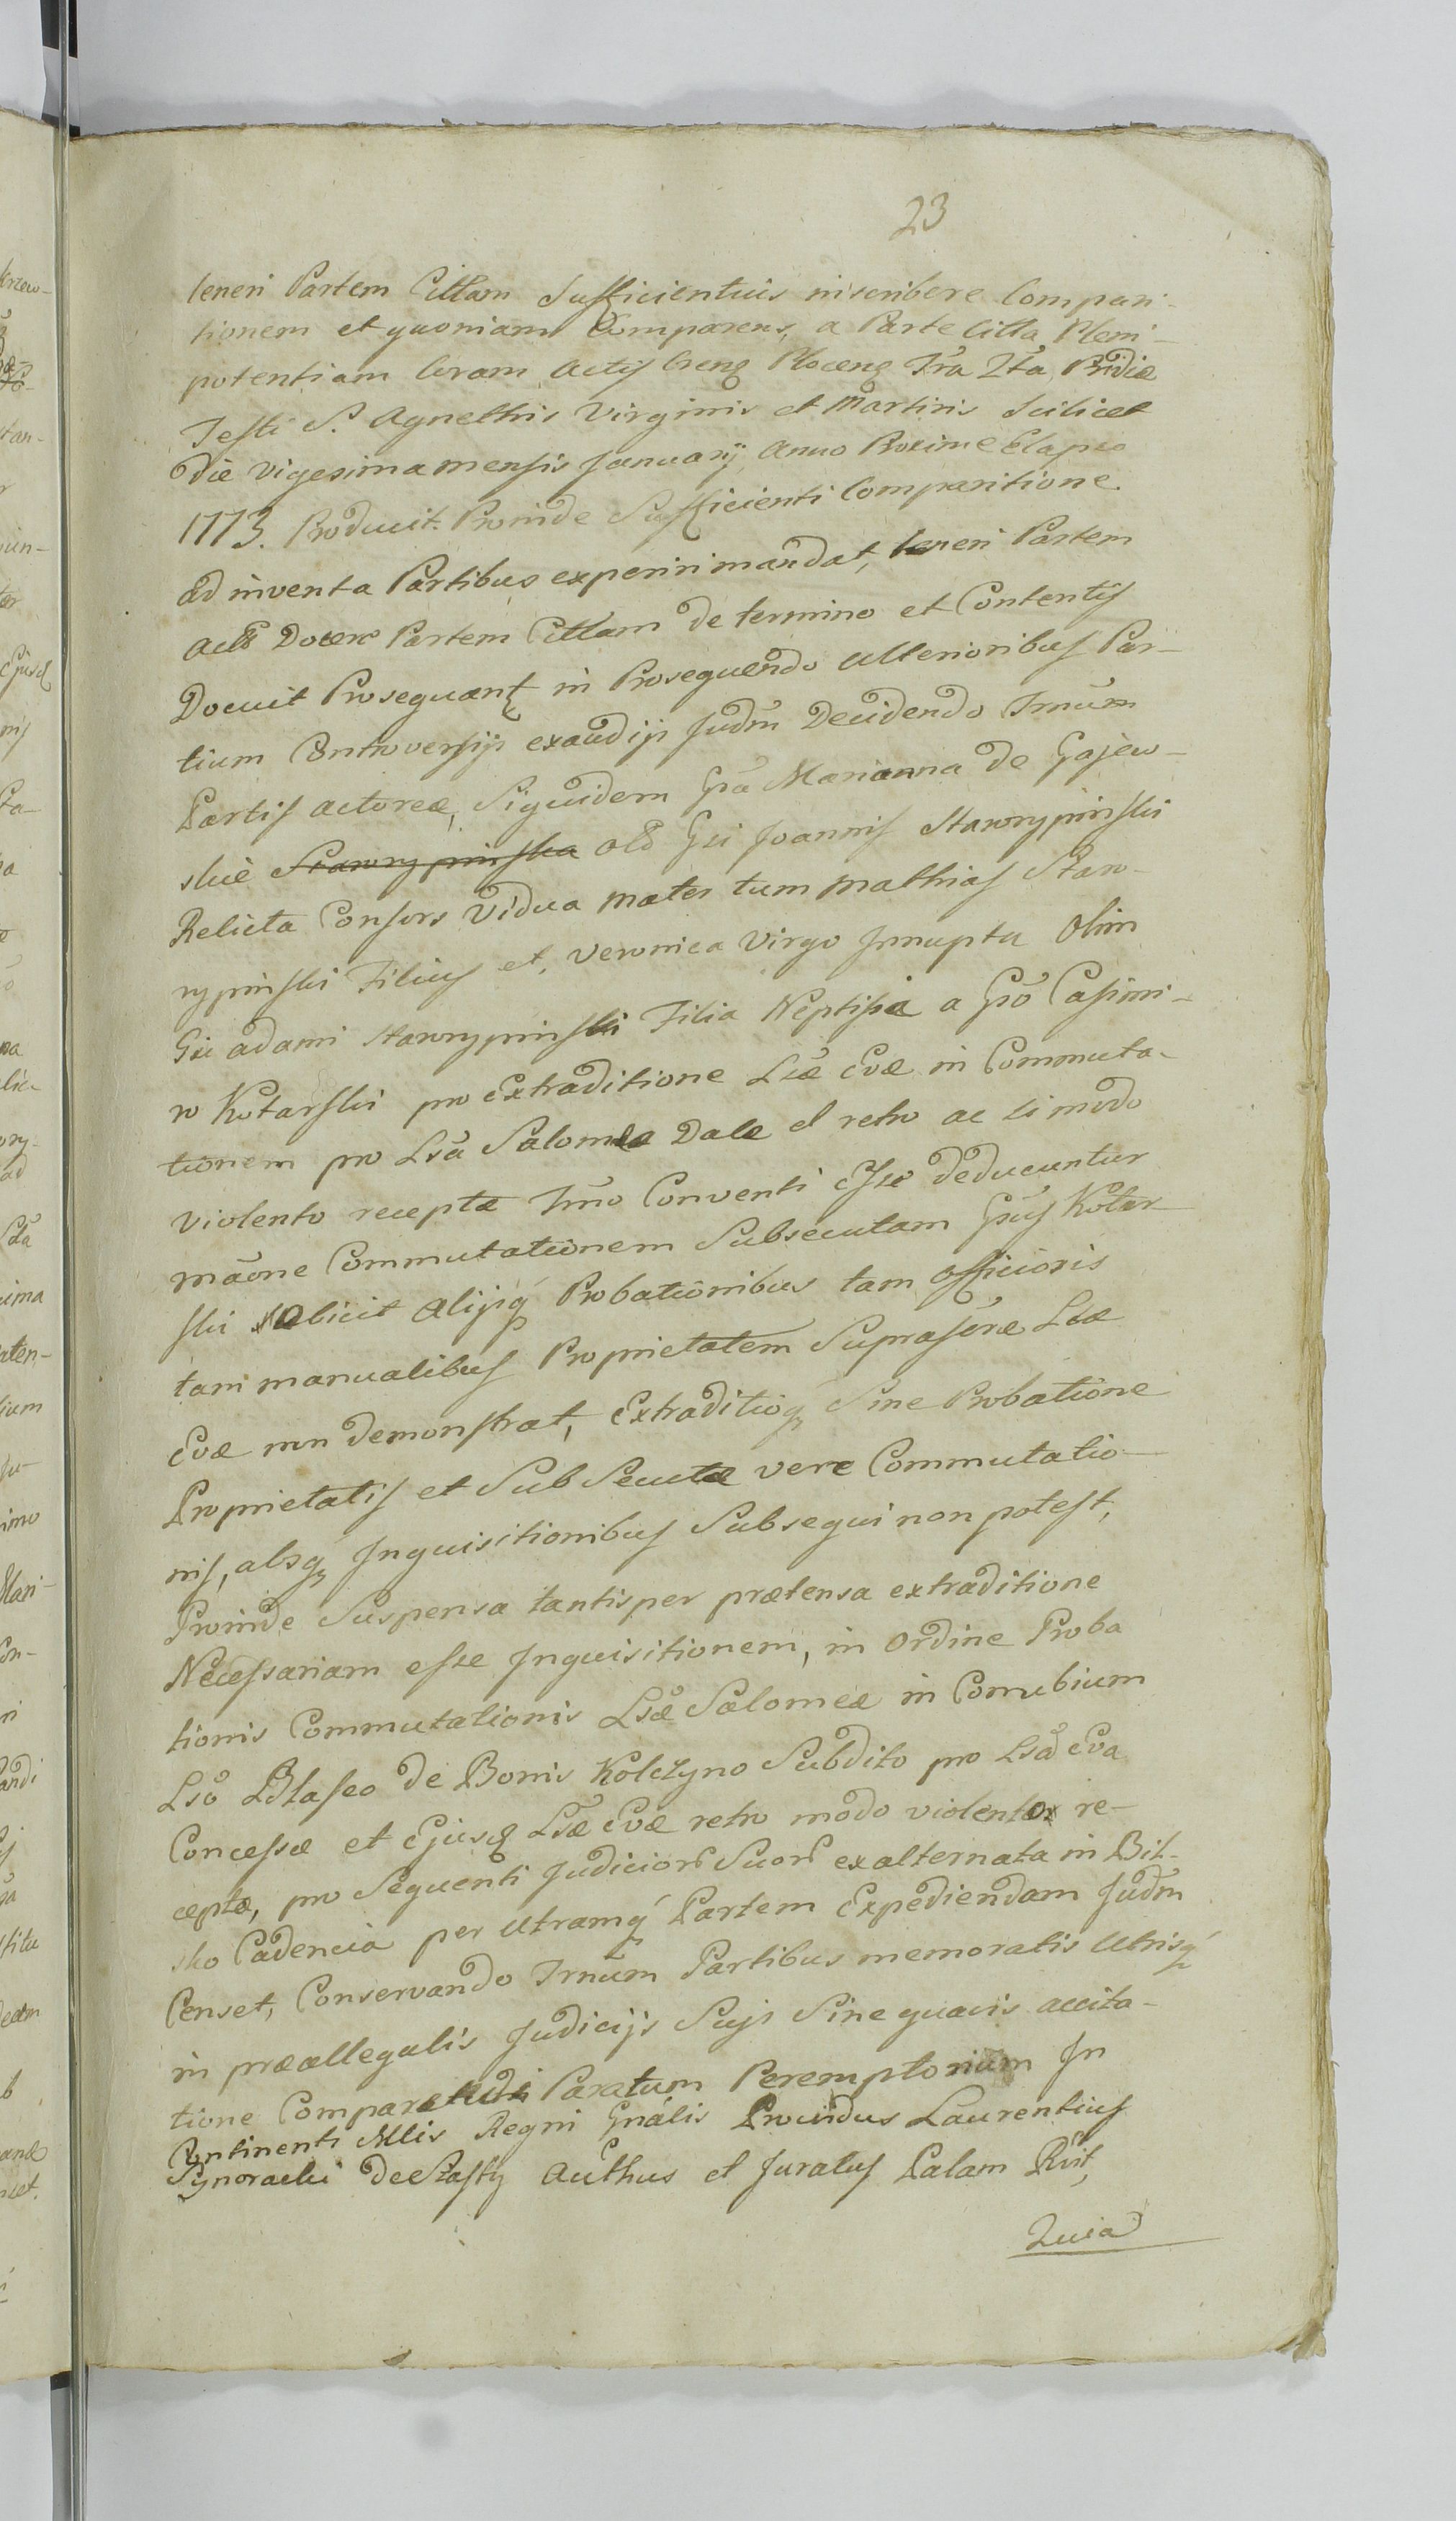 23
teneri Partem Cittam Sufficientius inscribere Compari-
tionem et quoniam Comparens, a Parte Citta Pleni-
potentiam Coram Actis Frã 2tã Pridie
Festi S. Agnethis Virginis et Martiris Scilicet
die Vigesima mensis January Anno Proxime Elapso
1773. Producit. Proinde Sufficienti Comparitione
ad inventa Partibus experiri mandat, teneri Partem
Docere Partem Cittam de termino et Contentis
Docuit Prosequant in Prosequendo Ulterioribus Par-
tium Controversijs exaudijs Judm̃ Decidendo Trnum
Partis actoreæ, Siquidem Gsã Marianna de Gajew-
skie Stawrypinska old Gsi Joannis Stawrypinski
Relicta Consors Vidua Mater tum Mathias Staw-
rypinski Filius et, Veronica Virgo Innupta Olim
Gsi adami Stawrypinski Filia a Gsõ Casimi-
ro Kotarski pro Extraditione Lsæ Evæ in Commuta-
tionem pro Lsã Salomea Datæ et retro ac si modo
Violento receptæ Trño Conventi Esse deducuntur
mãone Commutationem Subsecutam Gsũs Kotar
ski Elicit Alijsq́ Probationibus tam Officiosis
tam manualibus Proprietatem Suprascræ Lsæ
Evæ non demonstrat, Extraditioq́ Sine Probatione
Proprietatis et Sub Secutæ vere Commutatio-
nis, absq́ Inquisitionibus Subsequi non potest,
Proinde Suspensa tantisper prætensa extraditione
Necessariam esse Inquisitionem, in Ordine Proba
tionis Commutationis Lsæ Salomeæ in Conubium
Lsõ Blaseo de Bonis Kolczyno Subdito pro Lsã Eva
Concessæ et Ejusq́ Lsæ Evæ retro modo violento re-
ceptæ, pro Sequenti Judicior̃ Suor̃ exalternata in Bil-
sko Cadencia per Utramq́ Partem Expediendam Judm̃
Censet, Conservando Trnũm Partibus memoratis Utrisq́
in præallegatis Judicijs Sujs Sine quavis accita-
tione Comparendi Paratum Peremptorium In
Continenti Mlis Regni Gnãlis Providus Laurentius
de Auth̃us et Juratus Palam Rvit,
Quia